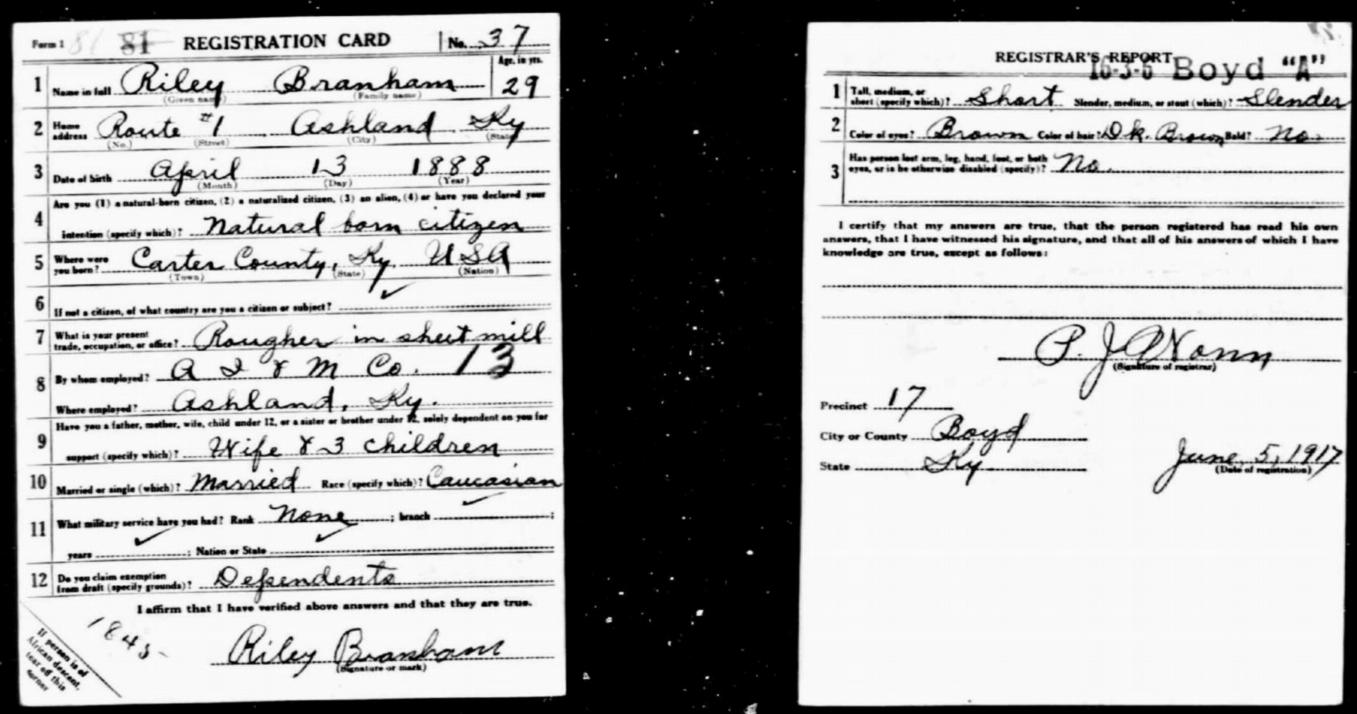 Form 1 81 81 REGISTRATION CARD No. 37
1 Name in full Riley Branham Age, in yrs. 29
(Given name) (Family name)
2 Home address Route #1 Ashland Ky
(No.) (Street) (City) (State)
3 Date of birth April 13 1888
(Month) (Day) (Year)
Are you (1) a natural-born citizen, (2) a naturalized citizen, (3) an alien, (4) or have you declared your
4 intention (specify which)? Natural born citizen
5 Where were you born? Carter County, Ky. USA
(Town) (State) (Nation)
6 If not a citizen, of what country are you a citizen or subject? ✓
7 What is your present trade, occupation, or office? Rougher in sheet mill
8 By whom employed? A I & M Co. 13
Where employed? Ashland, Ky.
Have you a father, mother, wife, child under 12, or a sister or brother under 12, solely dependent on you for
9 support (specify which)? Wife & 3 children
10 Married or single (which)? Married Race (specify which)? Caucasian
11 What military service have you had? Rank None ; branch ✓ ;
years ✓ ; Nation or State ✓
12 Do you claim exemption from draft (specify grounds)? Dependents
I affirm that I have verified above answers and that they are true.
1845
Riley Branham
(Signature or mark)
If person is of
African descent,
tear off this
corner
REGISTRAR'S REPORT
16-3-6 Boyd "A"
1 Tall, medium, or short (specify which)? Short Slender, medium, or stout (which)? Slender
2 Color of eyes? Brown Color of hair? Dk. Brown Bald? No
3 Has person lost arm, leg, hand, foot, or both eyes, or is he otherwise disabled (specify)? No.
I certify that my answers are true, that the person registered has read his own
answers, that I have witnessed his signature, and that all of his answers of which I have
knowledge are true, except as follows:
P. J.
(Signature of registrar)
Precinct 17
City or County Boyd
State Ky
June 5, 1917
(Date of registration)